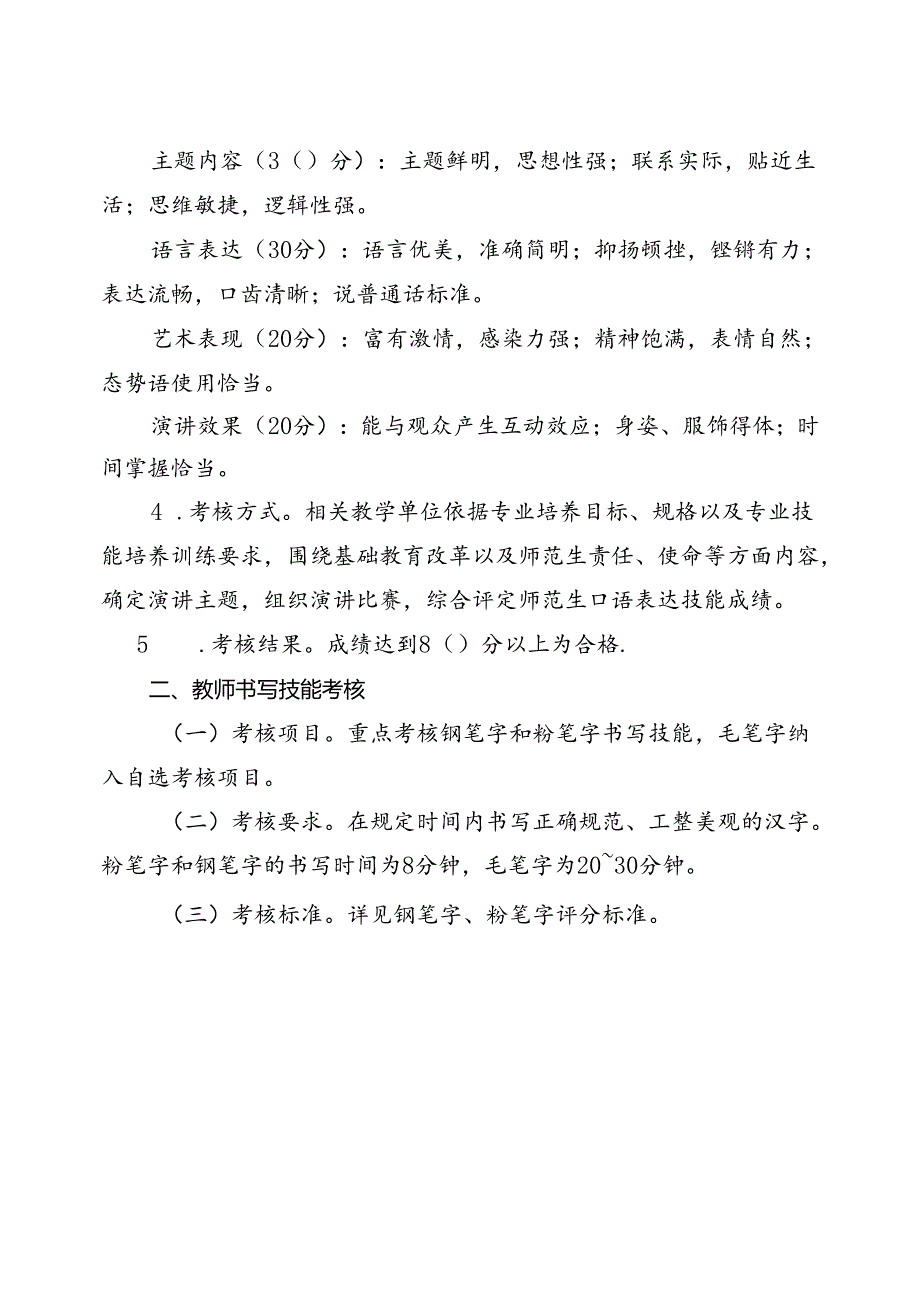 主题内容（3（）分）：主题鲜明，思想性强；联系实际，贴近生
活；思维敏捷，逻辑性强。
语言表达（30分）：语言优美，准确简明；抑扬顿挫，铿锵有力；
表达流畅，口齿清晰；说普通话标准。
艺术表现（20分）：富有激情，感染力强；精神饱满，表情自然；
态势语使用恰当。
演讲效果（20分）：能与观众产生互动效应；身姿、服饰得体；时
间掌握恰当。
4 .考核方式。相关教学单位依据专业培养目标、规格以及专业技
能培养训练要求，围绕基础教育改革以及师范生责任、使命等方面内容，
确定演讲主题，组织演讲比赛，综合评定师范生口语表达技能成绩。
5 .考核结果。成绩达到8（）分以上为合格.
二、教师书写技能考核
（一）考核项目。重点考核钢笔字和粉笔字书写技能，毛笔字纳
入自选考核项目。
（二）考核要求。在规定时间内书写正确规范、工整美观的汉字。
粉笔字和钢笔字的书写时间为8分钟，毛笔字为20~30分钟。
（三）考核标准。详见钢笔字、粉笔字评分标准。